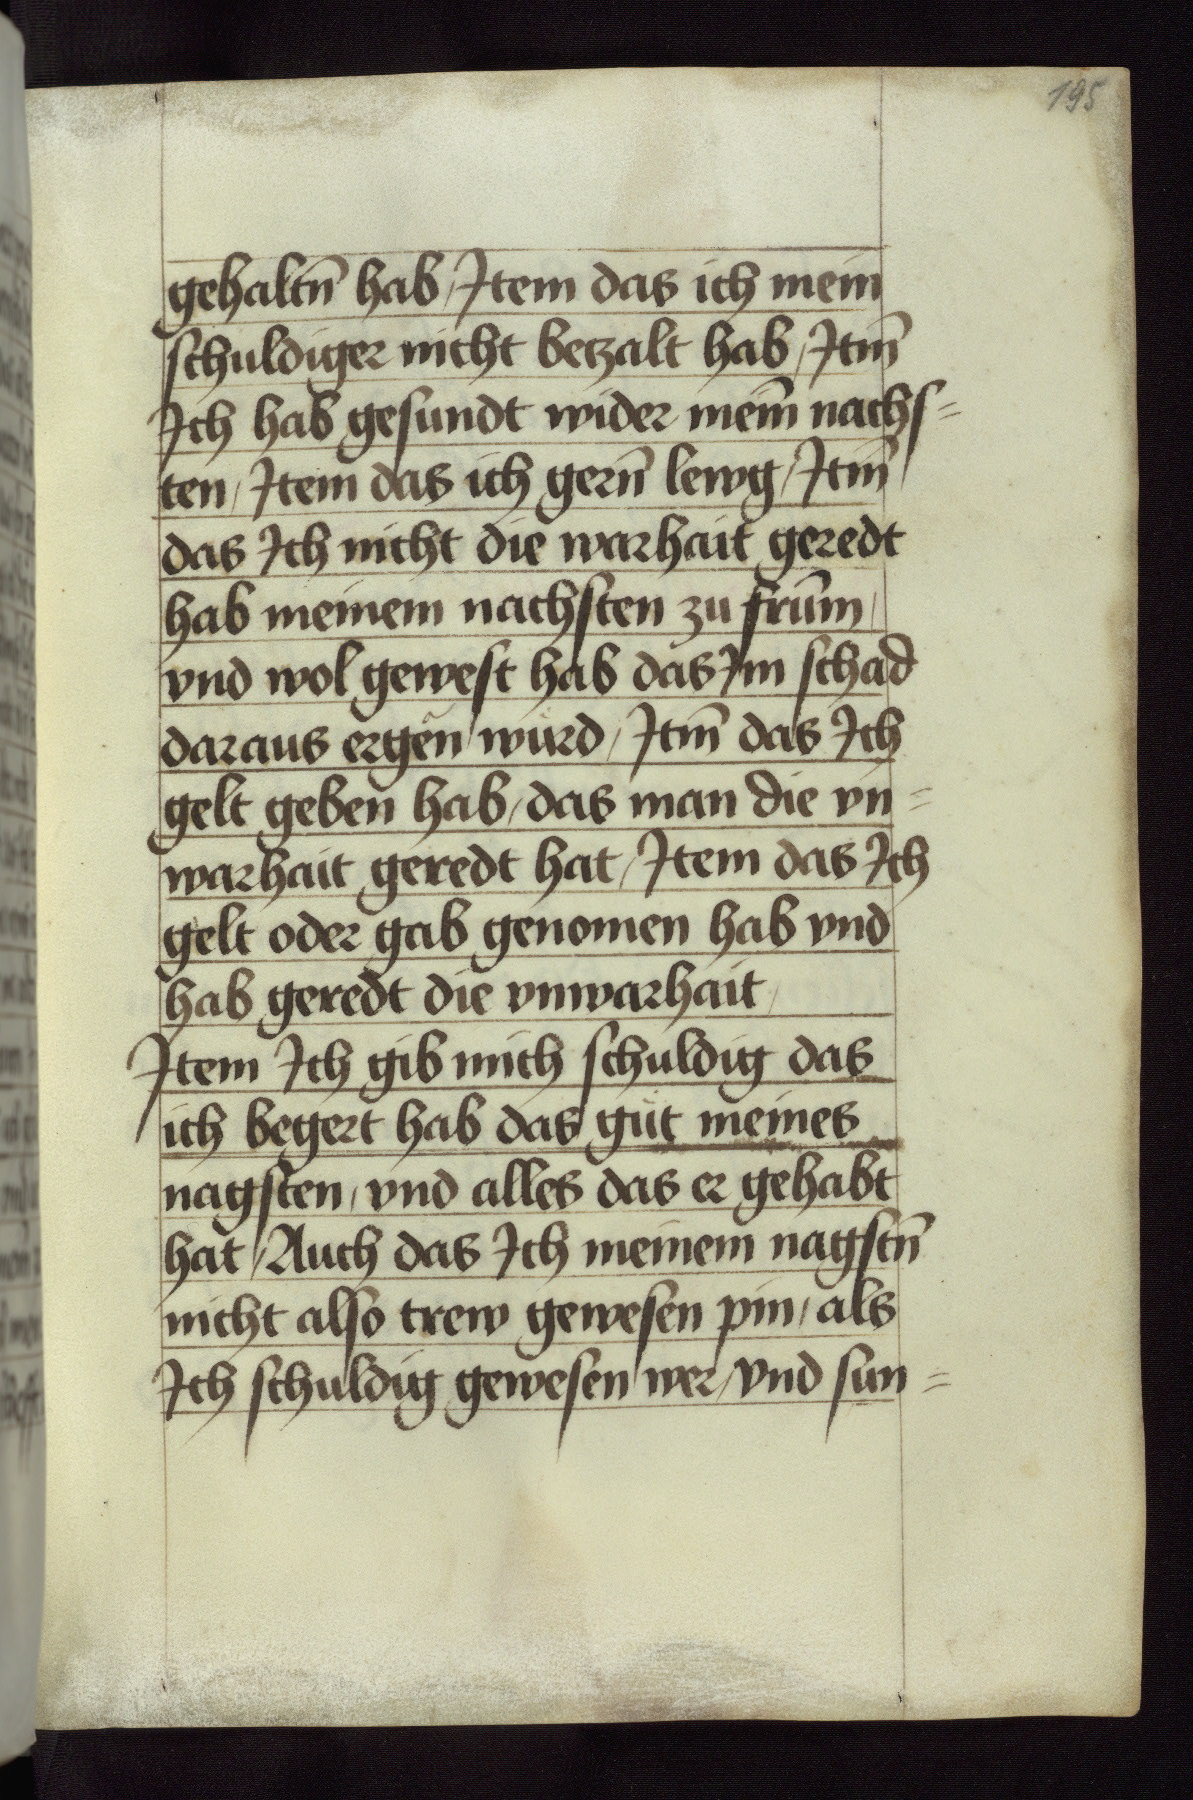 195
gehaltn̄ hab / Item das ich mein
schuldiger nicht betzalt hab / Itm̄
Ich hab gesundt wider mein̄ nachs=
ten / Item das ich gern̄ lewg / Itm̄
das Ich nicht die warhait geredt
hab meinem nachsten zu frum̄ /
vnd wol gewest hab das Im schad
daraus ergen̄ würd / Itm̄ das Ich
gelt geben hab / das man die vn=
warhait geredt hat / Item das Ich
gelt oder gab genomen hab vnd
hab geredt die vnwarhait /
Item Ich gib mich schuldig das
ich begert hab das güt meines
nagsten / vnd alles das er gehabt
hat / Auch das Ich meinem nagstn̄
nicht also trew gewesen pin / als
Ich schuldig gewesen wer / vnd sun=